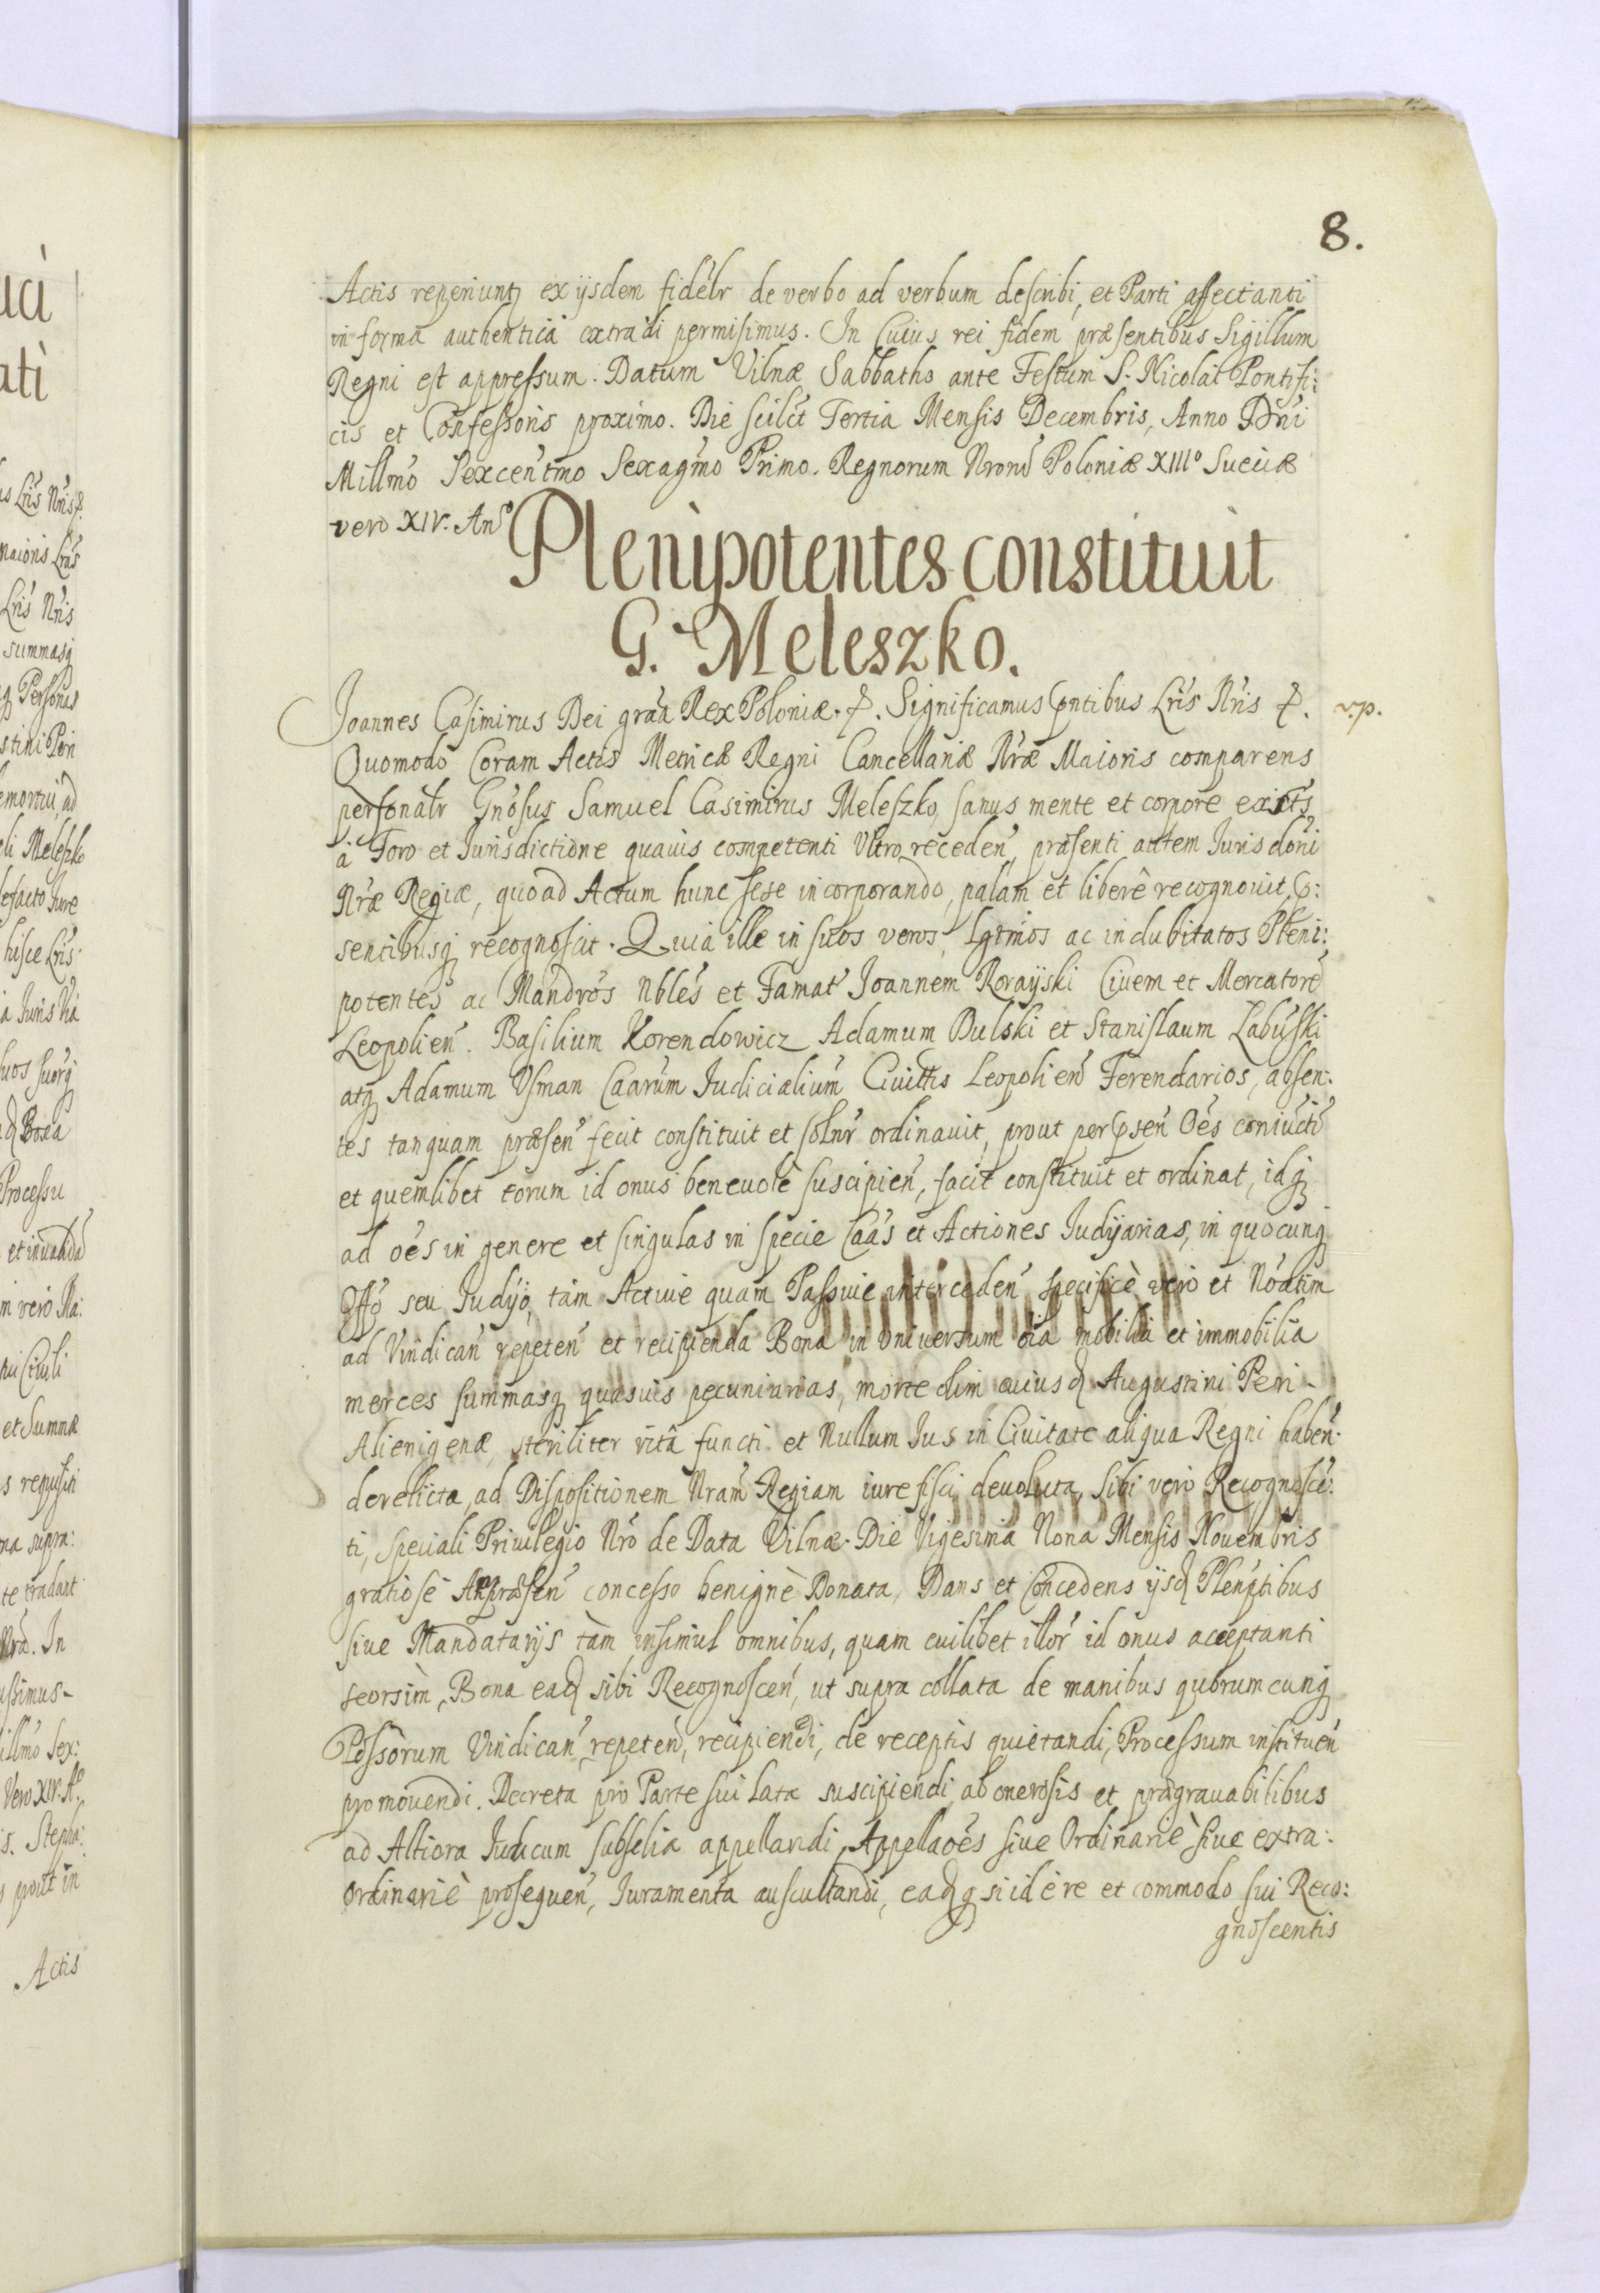 8.
Actis reperiuntꝫ ex ijsdem fidělr de verbo ad verbum describi, et Parti affectanti
in forma authentica extradi permisimus. In Cuius rei fidem præsentibus Sigillum
Regni est appressum. Datum Vilnæ Sabbatho ante Festum S. Nicolai Pontifi:
cis et Confessoris proximo. Die scilět Tertia Mensis Decembris, Anno Dňi
Millm̃o Sexcentm̃o Sexagm̃o Primo. Regnorum Nrorũ Poloniæ XIII° Sueciæ
vero XIV. Anº
Plenipotentes constituit
G. Meleszko.
Joannes Casimirus Dei grãa Rex Poloniæ. &. Significamus p̃ntibus Lrĩs Nrĩs &. v.p.
Quomodo Coram Actis Metricæ Regni Cancellariæ Nr̃æ Maioris comparens
personalr Gñosus Samuel Casimirus Meleszko, sanus mente et corpore existẽs
à Foro et Jurisdictione quauis competenti Vltro receden̄, præsenti autem Jurisdõni
Nr̃æ Regiæ, quoad Actum hunc sese incorporando, palàm et liberè recognouit, p̃:
sentibusq recognoscit. Quia ille in suos veros, Lgtm̃os ac indubitatos Pleni:
potentes ac Mandrõs Nblẽs et Famat̃ Joannem Rorayski Ciuem et Mercatorẽ
Leopolien̄. Basilium Korendowicz Adamum Bulski et Stanislaum Labuski
atq Adamum Vsman Caarũm Judicialium Ciuittis Leopolien̄ Ferendarios, absen:
tes tanquam præsen̄ fecit constituit et solnr̃ ordinauit, prout per p̃sen̄ Oẽs coniũcti
et quemlibet eorum id onus beneuole suscipien̄, facit constituit et ordinat, idq
ad oẽs in genere et singulas in specie Caãs et Actiones Judijarias, in quocunq
Offõ seu Judijo, tàm Actiuè quam Passiuè interceden̄ specificè vero et Nõatim
ad Vindican̄ repeten̄ et recipienda Bona in vniuersum oĩa mobilia et immobilia
merces summasq quasuis pecuniarias, morte olim cuiusd Augustini Peri-
Alienigenæ, steriliter vitâ functi et Nullum Jus in Ciuitate aliqua Regni haben̄.
derelicta, ad Dispositionem Nram̃ Regiam iure fisci deuoluta, sibi verò Recognoscẽ:
ti, speciali Priuilegio Nrõ de Data Vilnæ. Die Vigesima Nona Mensis Nouembris
gratiosè præsen̄ concesso benignè Donata, Dans et Concedens ijsd Plenp̃tibus
siue Mandatarijs tàm insimul omnibus, quam cuilibet illor̃ id onus acceptanti
seorsìm, Bona ead sibi Recognoscen̄, ut supra collata de manibus quorumcunq
Possorum Vindican̄, repeten̄, recipiendi, de receptis quietandi, Processum instituen̄
promouendi. Decreta pro Parte sui Lata suscipiendi, ab onerosis et prægrauabilibus
ad Altiora Judicum subselia appellandi, Appellaões siue Ordinariè siue extra:
ordinariè prosequen̄, Juramenta auscultandi, eadq si id è re et commodo sui Reco:
gnoscentis